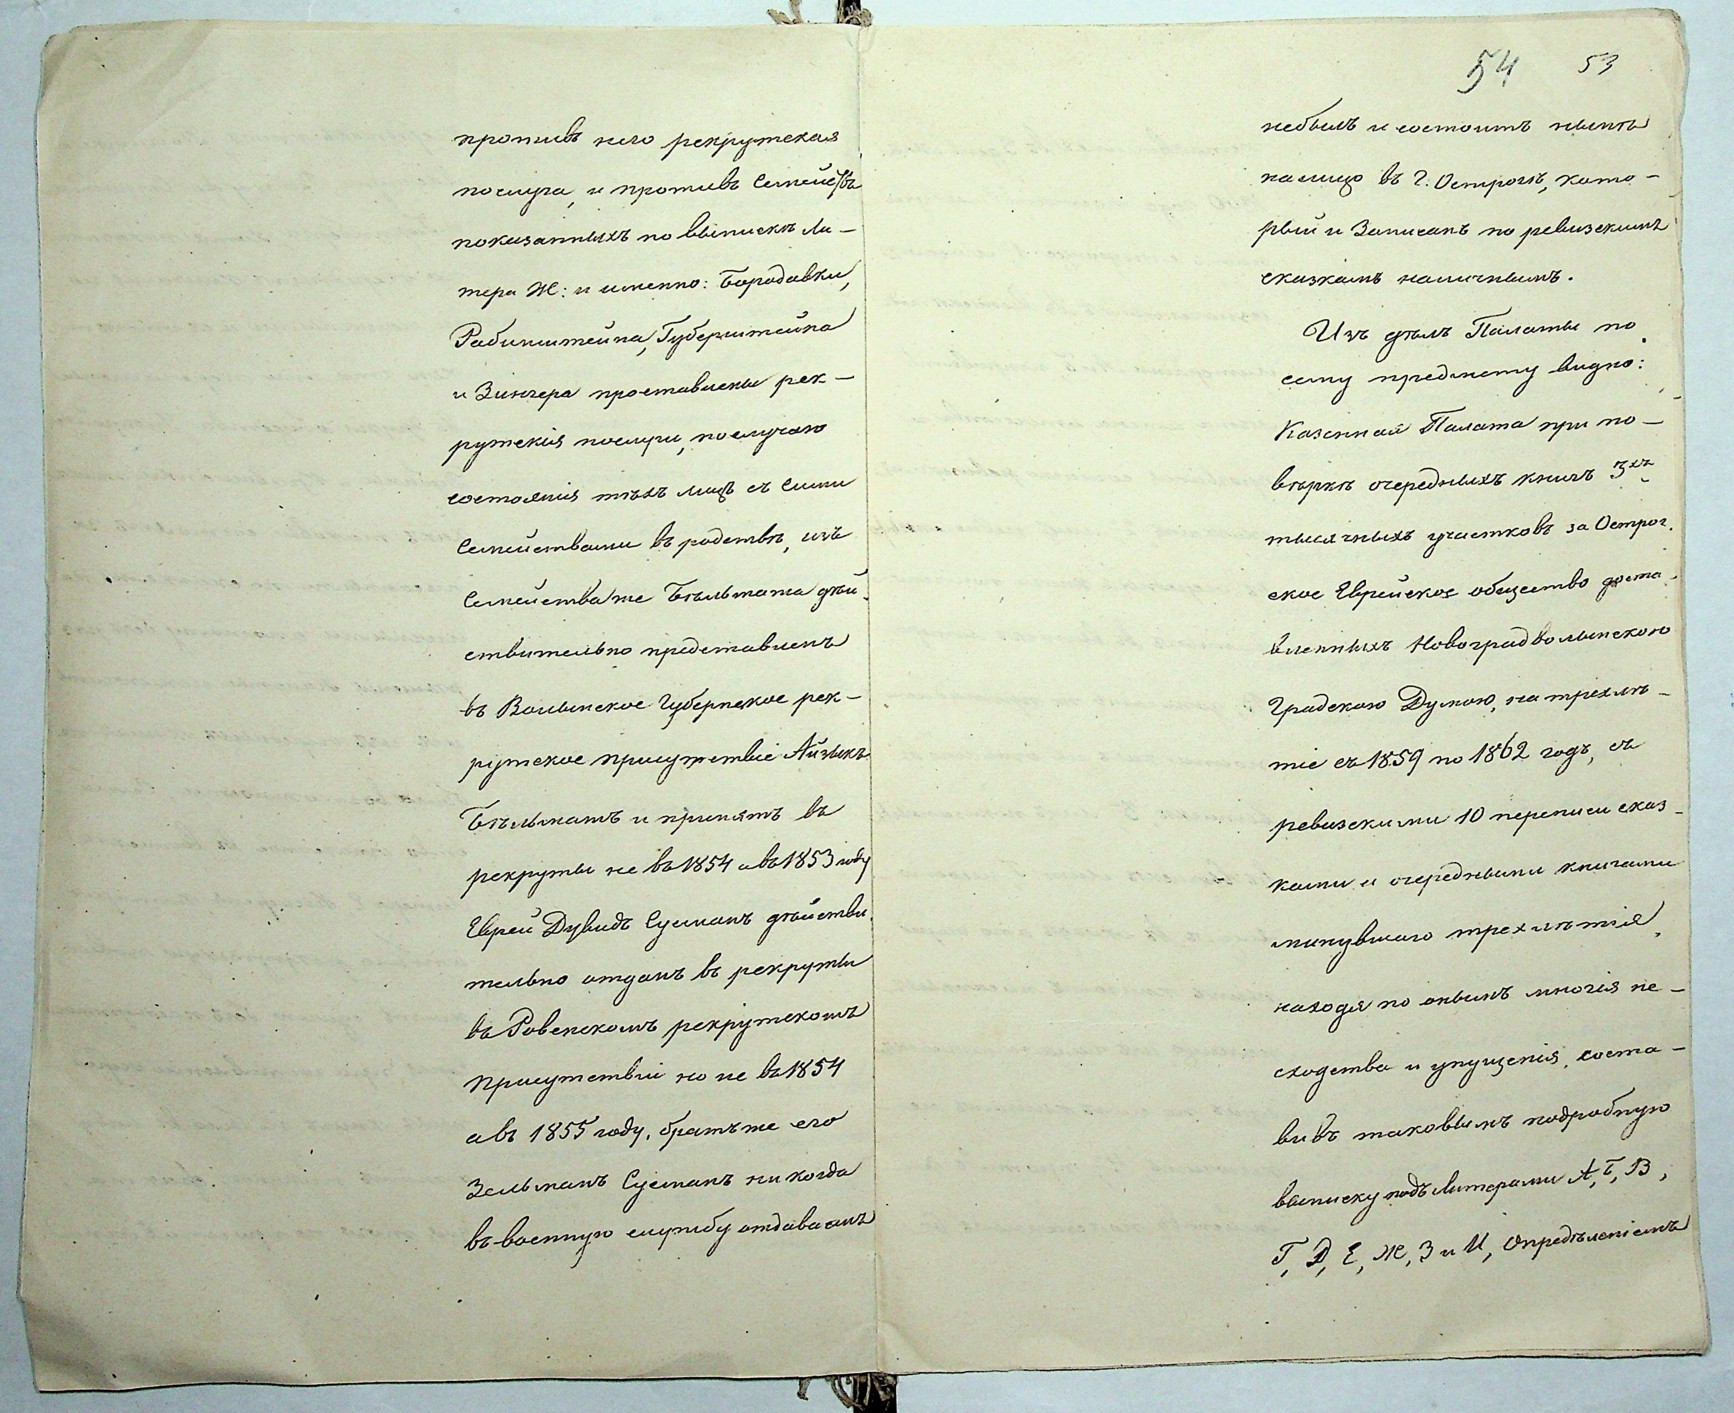 противъ него рекрутская
послуга, и противъ Семействъ
показанныхъ по выпискѣ Ли-
тера Ж: и именно: Бородавки,
Рабинштейна, Губерштейна
и Зингера проставлены рек-
рутскія послуги, по случаю
состоянія тѣхъ лицъ съ Сими
Семействами въ родствѣ, изъ
Семейства же Бѣльмана дѣй-
ствительно представленъ
въ Волынское Губернское рек-
рутское присутствіе Айзыкъ
Бѣльманъ и принятъ въ
рекруты не въ 1854 а въ 1853 году
Еврей Дувидъ Сусманъ дѣйстви-
тельно отданъ въ рекруты
въ Ровенскомъ рекрутскомъ
Присутствіи но не въ 1854
а въ 1855 году, братъ же его
Зельманъ Сусманъ никогда
въ военную службу отдаваемъ
54 53
небылъ и состоитъ нынѣ
на лицо въ Г. Острогѣ, кото-
рый и Записанъ по ревизскимъ
сказкамъ наличнымъ.
Изъ дѣлъ Палаты по
сему предмету видно:
Казенная Палата при по-
вѣркѣ очередныхъ книгъ 3хъ
тысячныхъ участковъ за Острог-
ское Еврейское общество доста-
вленныхъ Новоградволынскою
Градскою Думою, на трехлѣ-
тіе съ 1859 по 1862 годъ, съ
ревизскими 10 переписи сказ-
ками и очередными книгами
минувшаго трехлѣтія,
находя по онымъ многія не-
сходства и упущенія, соста-
вивъ таковымъ подробную
выписку подъ литерами А, Б, В,
Г, Д, Е, Ж, З и И, Опредѣленіемъ